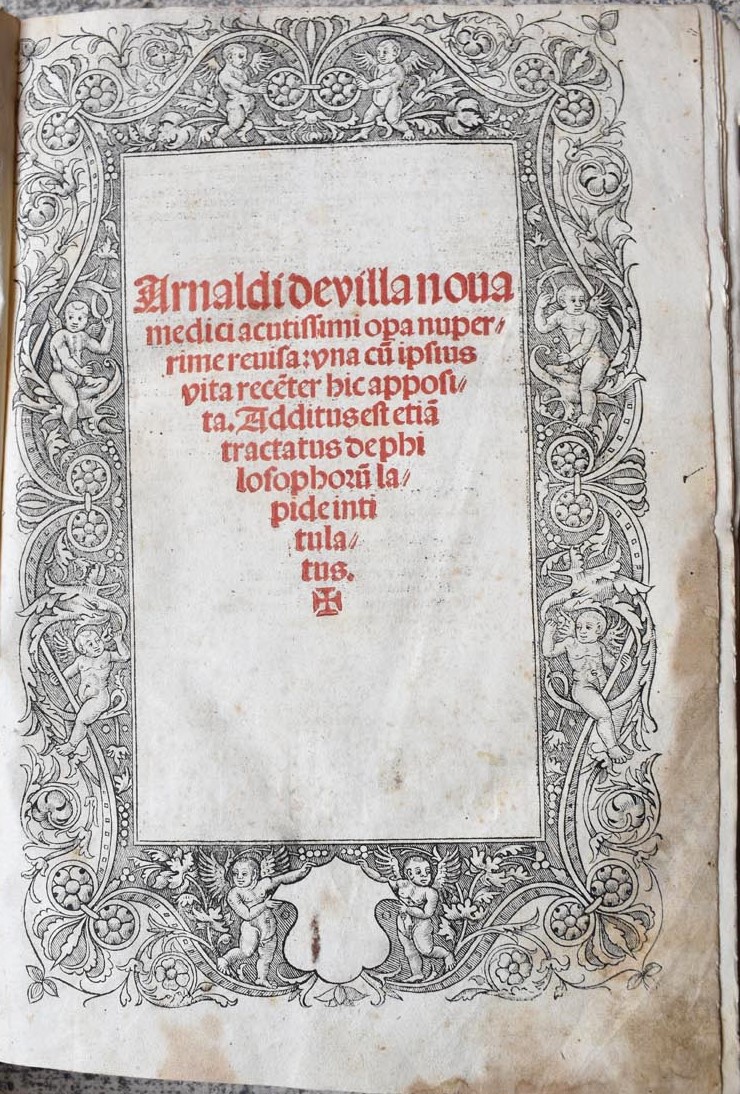 Arnaldi de villa noua
medici acutissimi opa nuper⸗
rime reuisa: vna cū ipsius
vita recēter hic apposi⸗
ta. Additus est etiā
tractatus de phi
losophorū la⸗
pide inti
tula⸗
tus.
✠